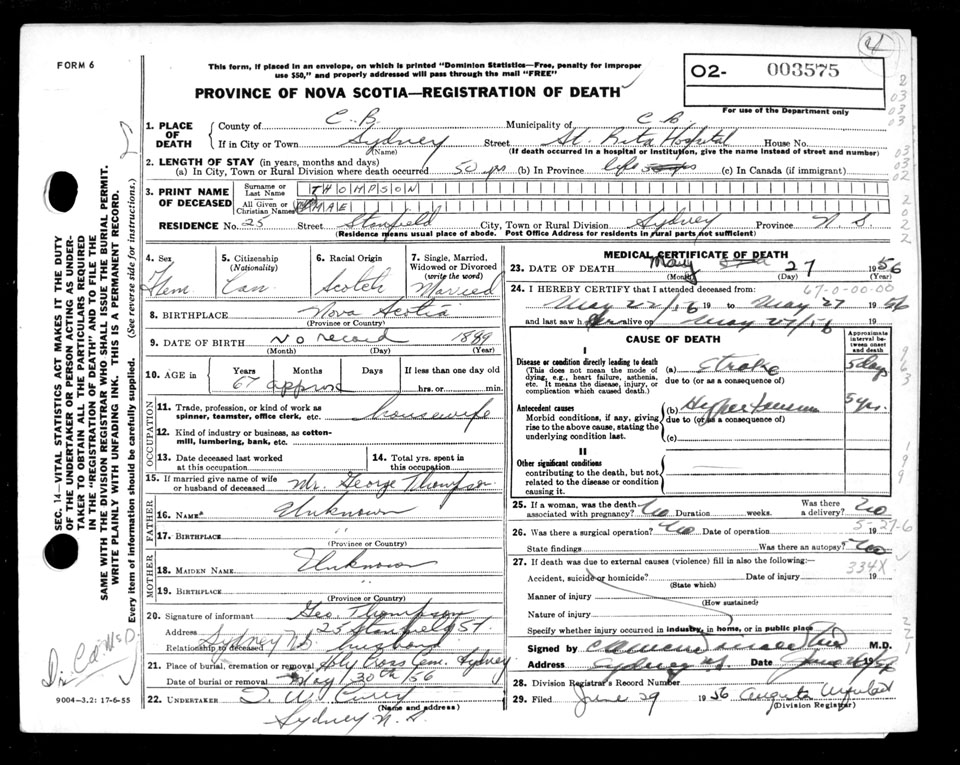 FORM 6
This form, if placed in an envelope, on which is printed "Dominion Statistics—Free, penalty for improper
use $50," and properly addressed will pass through the mail "FREE"
PROVINCE OF NOVA SCOTIA—REGISTRATION OF DEATH
O2- 003575
For use of the Department only
1. PLACE OF DEATH County of C. B. Municipality of C. B.
If in City or Town Sydney (Name) Street St. Rita Hospital House No.
(If death occurred in a hospital or institution, give the name instead of street and number)
2. LENGTH OF STAY (in years, months and days)
(a) In City, Town or Rural Division where death occurred 50 yrs (b) In Province life (c) In Canada (if immigrant)
3. PRINT NAME OF DECEASED Surname or Last Name THOMPSON
All Given or Christian Names MAE
RESIDENCE No. 25 Street Stanfield City, Town or Rural Division Sydney Province N S.
(Residence means usual place of abode. Post Office Address for residents in rural parts not sufficient)
4. Sex Fem
5. Citizenship (Nationality) Can
6. Racial Origin Scotch
7. Single, Married, Widowed or Divorced (write the word) Married
8. BIRTHPLACE Nova Scotia
(Province or Country)
9. DATE OF BIRTH No record 1889
(Month) (Day) (Year)
10. AGE Years Months Days If less than one day old
67 approx hrs. or min.
OCCUPATION
11. Trade, profession, or kind of work as spinner, teamster, office clerk, etc. housewife
12. Kind of industry or business, as cotton-mill, lumbering, bank, etc.
13. Date deceased last worked at this occupation
14. Total yrs. spent in this occupation
15. If married give name of wife or husband of deceased Mr. George Thompson
FATHER
16. NAME Unknown
17. BIRTHPLACE "
(Province or Country)
MOTHER
18. MAIDEN NAME Unknown
19. BIRTHPLACE "
(Province or Country)
20. Signature of informant Geo. Thompson
Address 25 Stanfield St.
Sydney N.S.
Relationship to deceased husband
21. Place of burial, cremation or removal Holy Cross Cem. Sydney
Date of burial or removal May 30th/56
22. UNDERTAKER T. W. Curry
(Name and address)
Sydney N. S.
MEDICAL CERTIFICATE OF DEATH
23. DATE OF DEATH May 27 1956
(Month) (Day) (Write year)
24. I HEREBY CERTIFY that I attended deceased from: 67-0-00-00
May 22/56 19 to May 27 1956
and last saw her alive on May 27/56 19
CAUSE OF DEATH
Approximate interval between onset and death
I
Disease or condition directly leading to death
(This does not mean the mode of dying, e.g., heart failure, asthenia, etc. It means the disease, injury, or complication which caused death.)
(a) Stroke 5 days
due to (or as a consequence of)
Antecedent causes
Morbid conditions, if any, giving rise to the above cause, stating the underlying condition last.
(b) Hypertension 5 yrs.
due to (or as a consequence of)
(c)
II
Other significant conditions
contributing to the death, but not related to the disease or condition causing it.
25. If a woman, was the death associated with pregnancy? No Duration weeks. Was there a delivery? No
5-27-6
26. Was there a surgical operation? No Date of operation
State findings Was there an autopsy? No
27. If death was due to external causes (violence) fill in also the following:
334X
Accident, suicide or homicide? Date of injury 19
(State which)
Manner of injury
(How sustained)
Nature of injury
Specify whether injury occurred in industry, in home, or in public place
Signed by M.D.
Address Sydney N.S. Date June
28. Division Registrar's Record Number
29. Filed June 29 1956
(Division Registrar)
SEC. 14—VITAL STATISTICS ACT MAKES IT THE DUTY
OF THE UNDERTAKER OR PERSON ACTING AS UNDER-
TAKER TO OBTAIN ALL THE PARTICULARS REQUIRED
IN THE "REGISTRATION OF DEATH" AND TO FILE THE
SAME WITH THE DIVISION REGISTRAR WHO SHALL ISSUE THE BURIAL PERMIT.
WRITE PLAINLY WITH UNFADING INK. THIS IS A PERMANENT RECORD.
Every item of information should be carefully supplied. (See reverse side for instructions.)
9004-3.2: 17-6-55